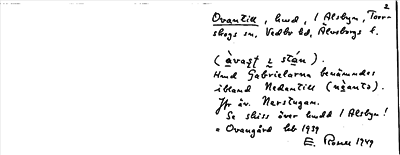 2
Ovantill, hmd, i Alsbyn, Torrs-
skogs sn, Vedbo hd, Älvsborgs l.
(àvast i stán).
Hmd Gabrielarna benämndes
ibland Nedantill (nèanto).
Jfr äv. Nerstugan.
Se skiss över hmdd i Alsbyn!
= Ovangård lsb 1939
E. Rosell 1949